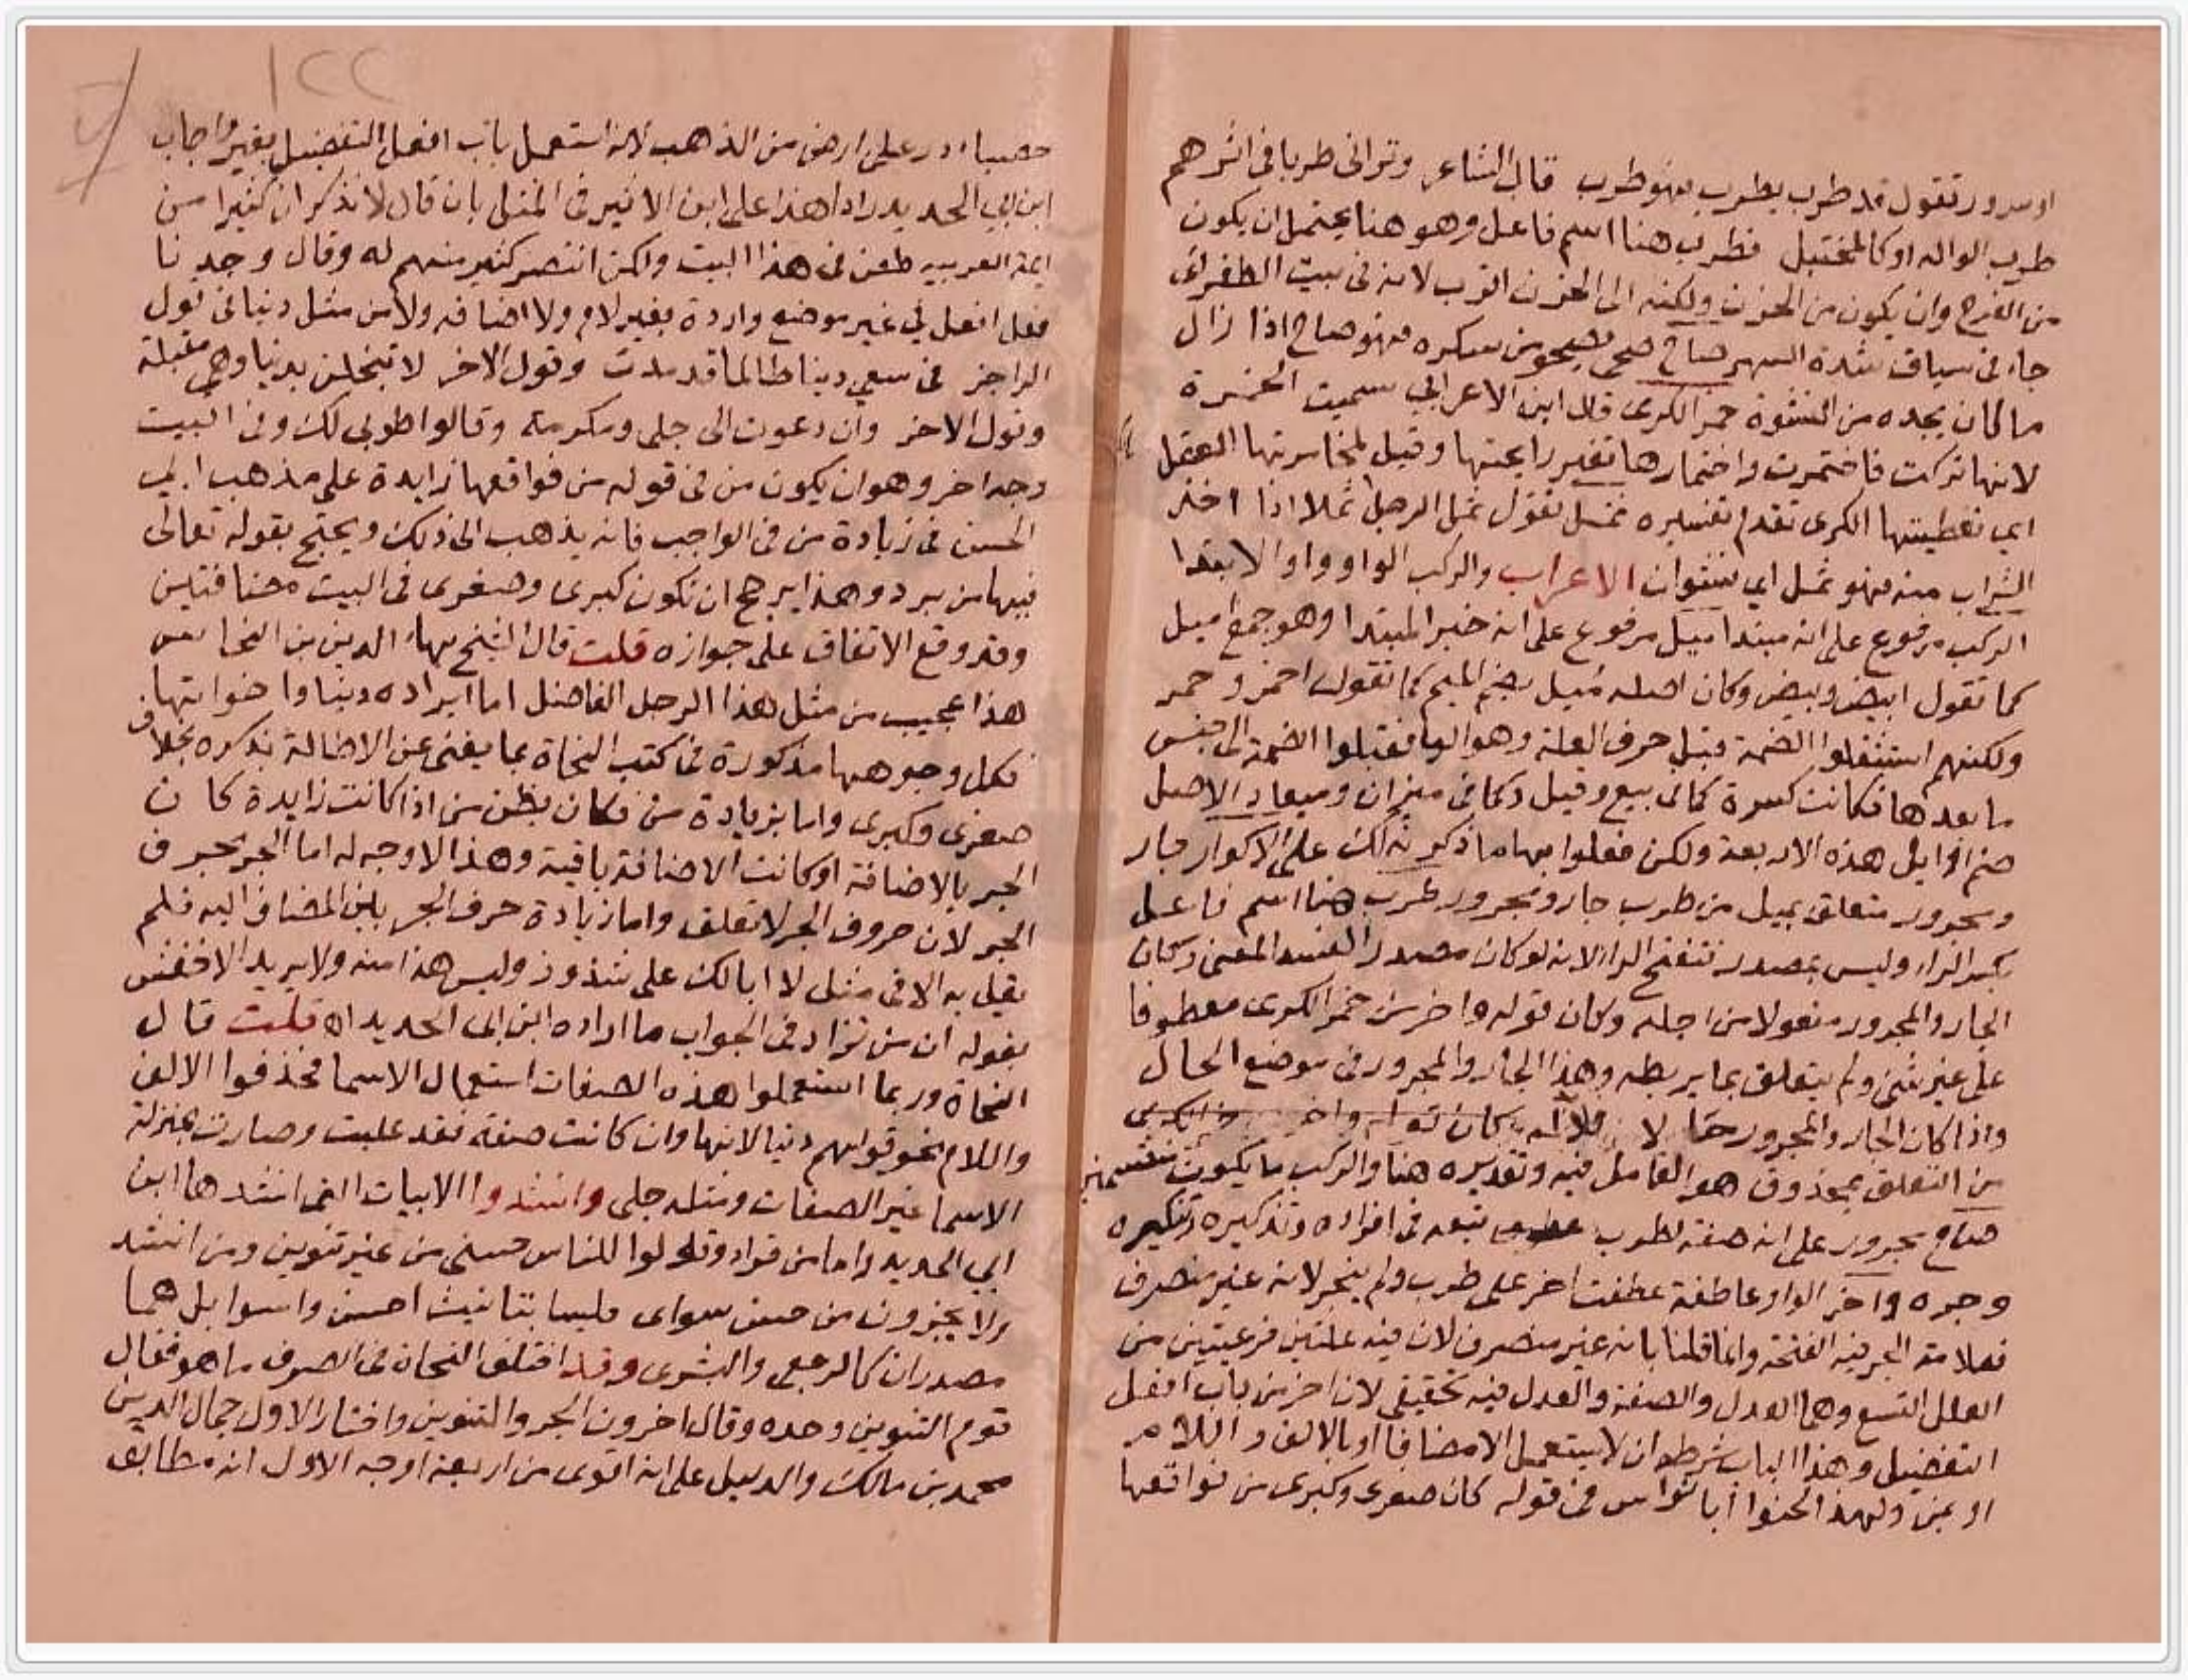 او سرور تقول قد طرب يطرب فهو طرب قال الشاعر وتراني طربا في اثرهم
طرب الواله او كالمختبل فطرب هنا اسم فاعل وهو هنا يحتمل ان يكون
من الفرح وان يكون من الحزن ولكنه الى الحزن اقرب لانه في بيت الطغرائي
جاء في سياق شدة السهر صاح صحى يصحو من سكره فهو صاح اذا زال
ما كان يجده من النشوة خمر الكرى قال ابن الاعرابي سميت الخمرة
لانها تركت فاختمرت واختمارها تغير رايحتها وقيل لمخامرتها العقل
اي تغطيتها الكرى تقدم تفسيره ثمل تقول ثمل الرجل ثملا اذا اخذ
الشراب منه فهو ثمل اي نشوان الاعراب والركب الواو واو الابتدا
الركب مرفوع على انه مبتدا ميل مرفوع على انه خبر المبتدا وهو جمع اميل
كما تقول ابيض وبيض وكان اصله مُيل بضم الميم كما تقول احمر وحمر
ولكنهم استثقلوا الضمة قبل حرف العلة وهو اليا فقبلوا الضمة الى جنس
ما بعدها فكانت كسرة كما في بيع وقيل وكما في ميزان وميعاد الاصل
ضم اوايل هذه الاربعة ولكن فعلوا بها ما ذكرته لك على الاكوار جار
ومجرور متعلق بميل من طرب جار ومجرور طرب هنا اسم فاعل
بكسر الراء وليس بمصدر فتفتح الراء لانه لو كان مصدرا لفسد المعنى وكان
الجار والمجرور مفعولا من اجله وكان قوله واخر من خمر الكرى معطوفا
على غير شيء ولم يتعلق بما يربطه وهذا الجار والمجرور في موضع الحال
واذا كان الجار والمجرور حالا فلا بد كان قوله واخر من خمر الكرى
من التعلق بمحذوف هو العامل فيه وتقديره هنا والركب ما يكون منقسمين
صاح مجرور على انه صفة لطرب تبعه في افراده وتذكيره وتنكيره
وجره واخر الواو عاطفة عطفت اخر على طرب ولم ينجر لانه غير منصرف
فعلامة الجر فيه الفتحة وانما قلنا بانه غير منصرف لان فيه علتين فرعيتين من
العلل التسع وهما العدل والصفة والعدل فيه تحقيقي لان اخر من باب افعل
التفضيل وهذا الباب شرطه ان لا يستعمل الا مضافا او بالالف واللام
او بمن ولهذا لحنوا ابا نواس في قوله كان صغرى وكبرى من فواقعها
١٢٢
حصباء در على ارض من الذهب لانه استعمل باب افعل التفضيل بغير واجاب
ابن ابي الحديد رادا هذا على ابن الاثير في المثل بان قال لا نذكر ان كثيرا من
ايمة العربية طعن في هذا البيت ولكن انتصر كثير منهم له وقال وجدنا
فعل افعل في غير موضع واردة بغير لام ولا اضافه ولا من مثل دنيا في قول
الراجز في سعي دنيا طالما قد مدت وقول الاخر لا تبخلن بدنيا وهي مقبلة
وقول الاخر وان دعوت الى جلى ومكرمة وقالوا طوبى لك وفي البيت
وجه اخر وهو ان يكون من في قوله من فواقعها زايدة على مذهب ابي
الحسن في زيادة من في الواجب فانه يذهب الى ذلك ويحتج بقوله تعالى
فيها من برد وهذا يرجح ان تكون كبرى وصغرى في البيت مضافتين
وقد وقع الاتفاق على جوازه قلت قال الشيخ بهاء الدين بن النحاس
هذا عجيب من مثل هذا الرجل الفاضل اما ايراده دنيا واخواتها
فكل وجوهها مذكورة في كتب النحاة بما يغني عن الاطالة بذكره بخلاف
صغرى وكبرى واما بزيادة من فكان يظن من اذا كانت زايدة كان
الجر بالاضافة او كانت الاضافة باقية وهذا لا وجه له اما الجر بحرف
الجر لان حروف الجر لا تعلق واما زيادة حرف الجر بين المضاف اليه فلم
يقل به الا في مثل لا ابا لك على شذوذ وليس هذا منه ولا يريد الاخفش
بقوله ان من تزاد في الجواب ما اراده ابن ابي الحديد اه قلت قال
النحاة وربما استعملوا هذه الصفات استعمال الاسما فحذفوا الالف
واللام نحو قولهم دنيا لانها وان كانت صفة فقد غلبت وصارت بمنزلة
الاسما غير الصفات ومثله جلى وانشدوا الابيات التي انشدها ابن
ابي الحديد واما من قراء وقولوا للناس حسنى من غير تنوين ومن انشد
ولا يجزون من حسن سواى فليسا بتانيث احسن واسوا بل هما
مصدران كالرجعى والبشرى وقد اختلف النحاة في الصرف ما هو فقال
قوم التنوين وحده وقال اخرون الجر والتنوين واختار الاول جمال الدين
محمد بن مالك والدليل على انه اقوى من اربعة اوجه الاول انه مطابق